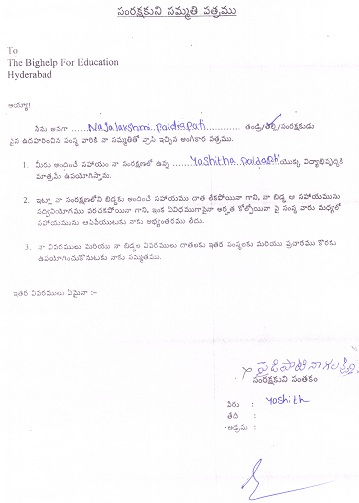 సంరక్షకుని సమ్మతి పత్రము
To
The Bighelp For Education
Hyderabad
అయ్యా!
నేను అనగా ...... Nagalakshmi Paidipati ............ తండ్రి/తల్లి/సంరక్షకుడు
పైన ఉదహరించిన సంస్థ వారికి నా సమ్మతితో వ్రాసి ఇచ్చిన అంగీకార పత్రము.
1. మీరు అందించే సహాయం నా సంరక్షణలో ఉన్న ...... Yoshitha Paidipati యొక్క విద్యాభివృద్ధికి
మాత్రమే ఉపయోగిస్తాను.
2. ఇట్లా నా సంరక్షణలోని బిడ్డకు అందించే సహాయము దాత లేకపోయినా గాని, నా బిడ్డ ఆ సహాయమును
సద్వినియోగము పరచకపోయినా గాని, ఇంక ఏవిధముగానైనా అర్హత కోల్పోయినా పై సంస్థ వారు మధ్యలో
సహాయమును ఆపివేయుటకు నాకు అభ్యంతరము లేదు.
3. నా వివరములు మరియు నా బిడ్డల వివరములు దాతలకు ఇతర సంస్థలకు మరియు ప్రచారము కొరకు
ఉపయోగించుకొనుటకు నాకు సమ్మతము.
ఇతర వివరములు ఏమైనా :–
పైడిపాటి నాగలక్ష్మి
సంరక్షకుని సంతకం
పేరు : Yoshith
తేదీ :
అడ్రసు :